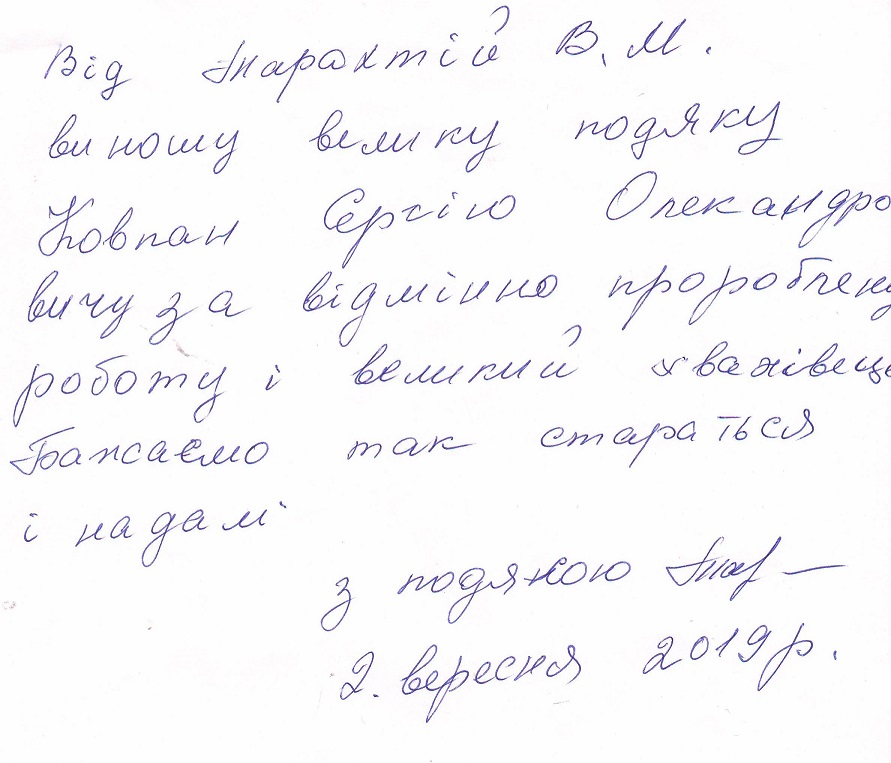 Від Тарахтій В. М.
виношу велику подяку
Ковпан Сергію Олександро
вичу за відмінно пророблену
роботу і великий хвахівець
Бажаємо так стараться
і надалі
з подякою
2. вересня 2019 р.